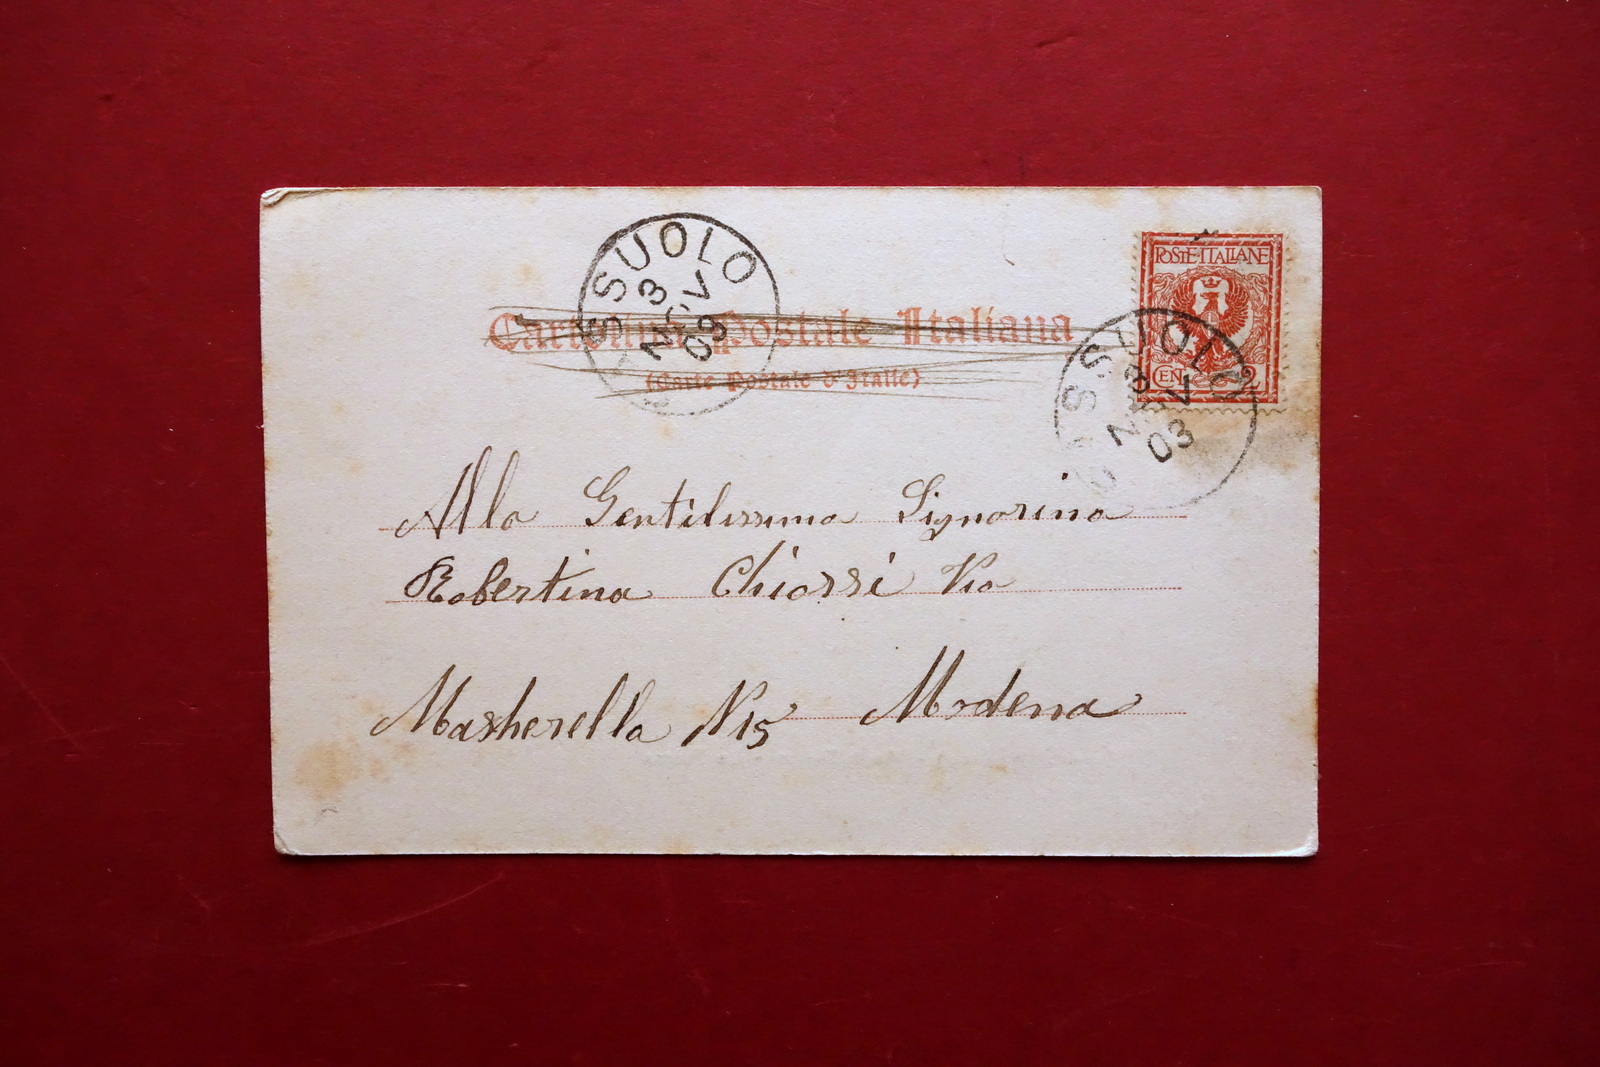 SSUOLO
3
NOV
03
POSTE·ITALIANE
CEN 2
Cartolina Postale Italiana
(Carte Postale d'Italie)
ASSUOLO
3
NOV
03
Alla Gentilissima Signorina
Robertina Chiossi Via
Masherella N 15 Modena